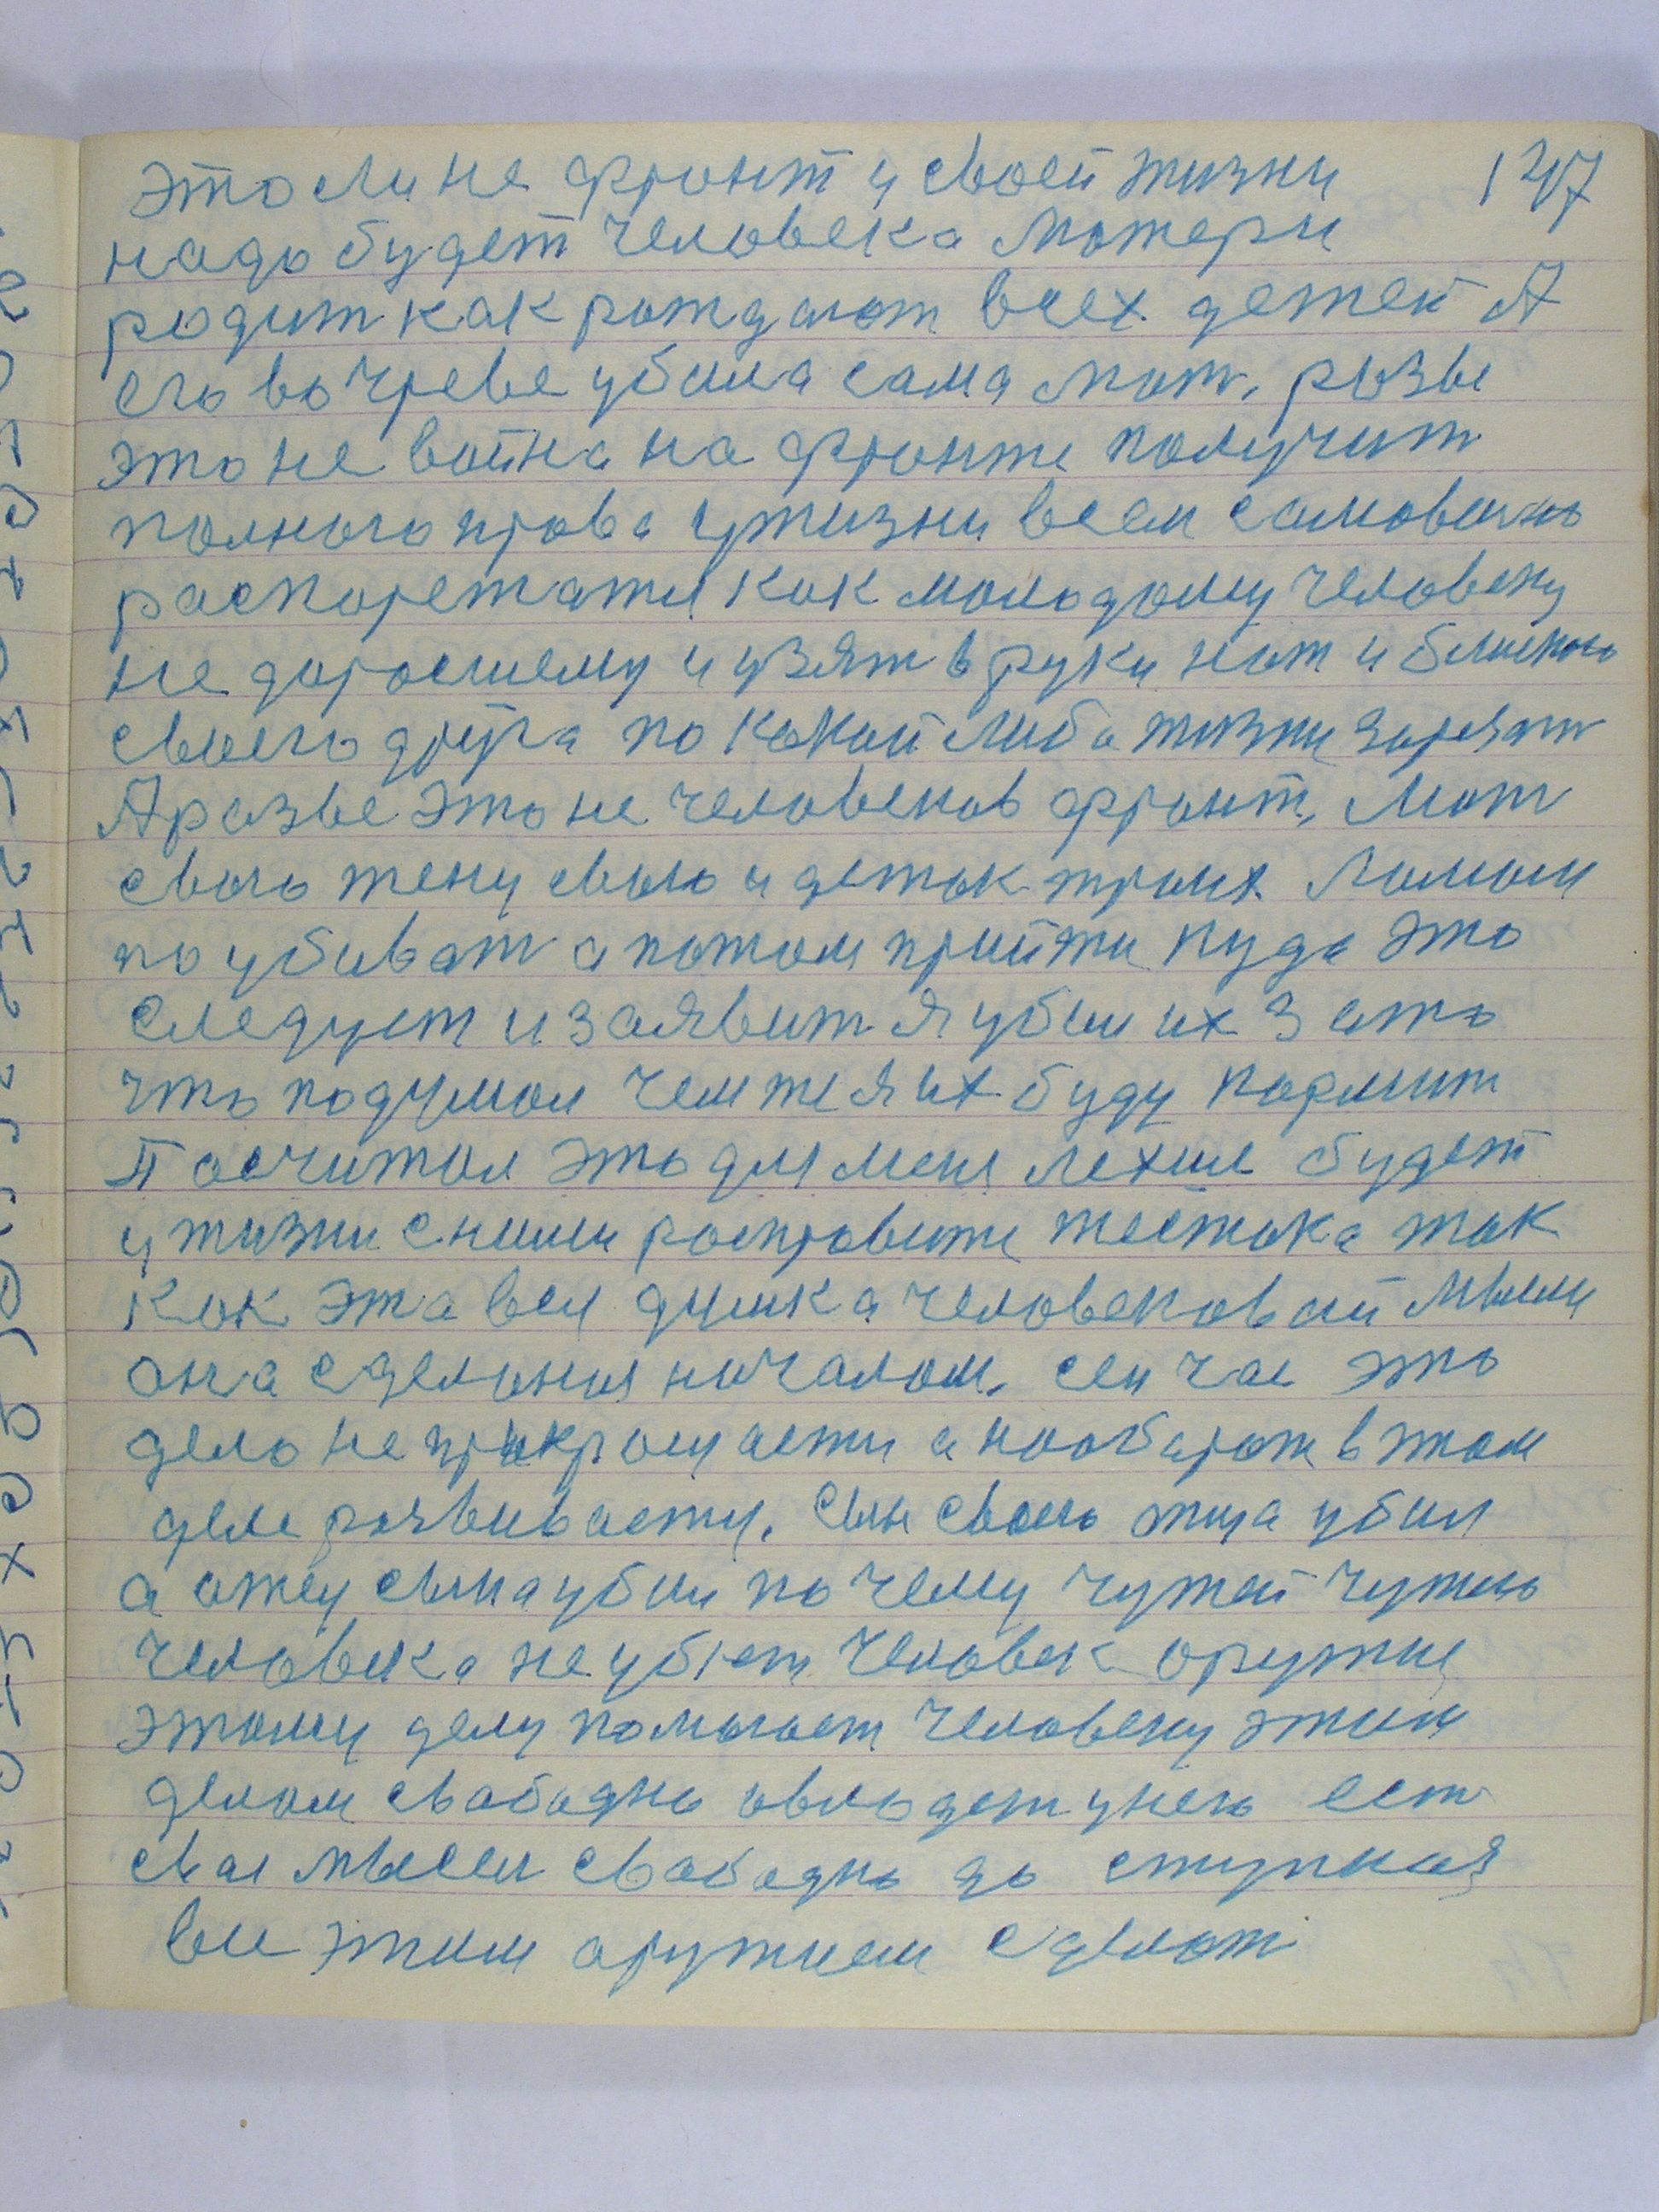 147
это ли не фронт у своей жизни
надо будет человека матери
родит как рождают всех детей А
его во чреве убила сама мат, разве
это не война на фронте получит
полного права у жизни всем самовольно
распорежатся как молодому человеку
не доросшему и узят в руки нож и близкого
своего друга по какой либо жизни зарезат
А разве это не человеков фронт, Мат
свою жену свою и деток троих ломом
по убиват а потом прийти куда это
следует и заявит я убил их за то
что подумал чем же я их буду кормит
Посчитал это для меня лехше будет
у жизни сними росправити жестока так
как эта вся думка человековай мысли
она сделаная началом. сейчас это
дело не прикрощаетя а наобарот в том
деле розвиваетя. Сын своего отца убил
а отец сына убил почему чужой чужого
человека не убъет человек оружие
этому делу помогает человеку этим
делом свабодно овладет унего ест
свае мысли свабодно до ступная
все этим оружием сделат